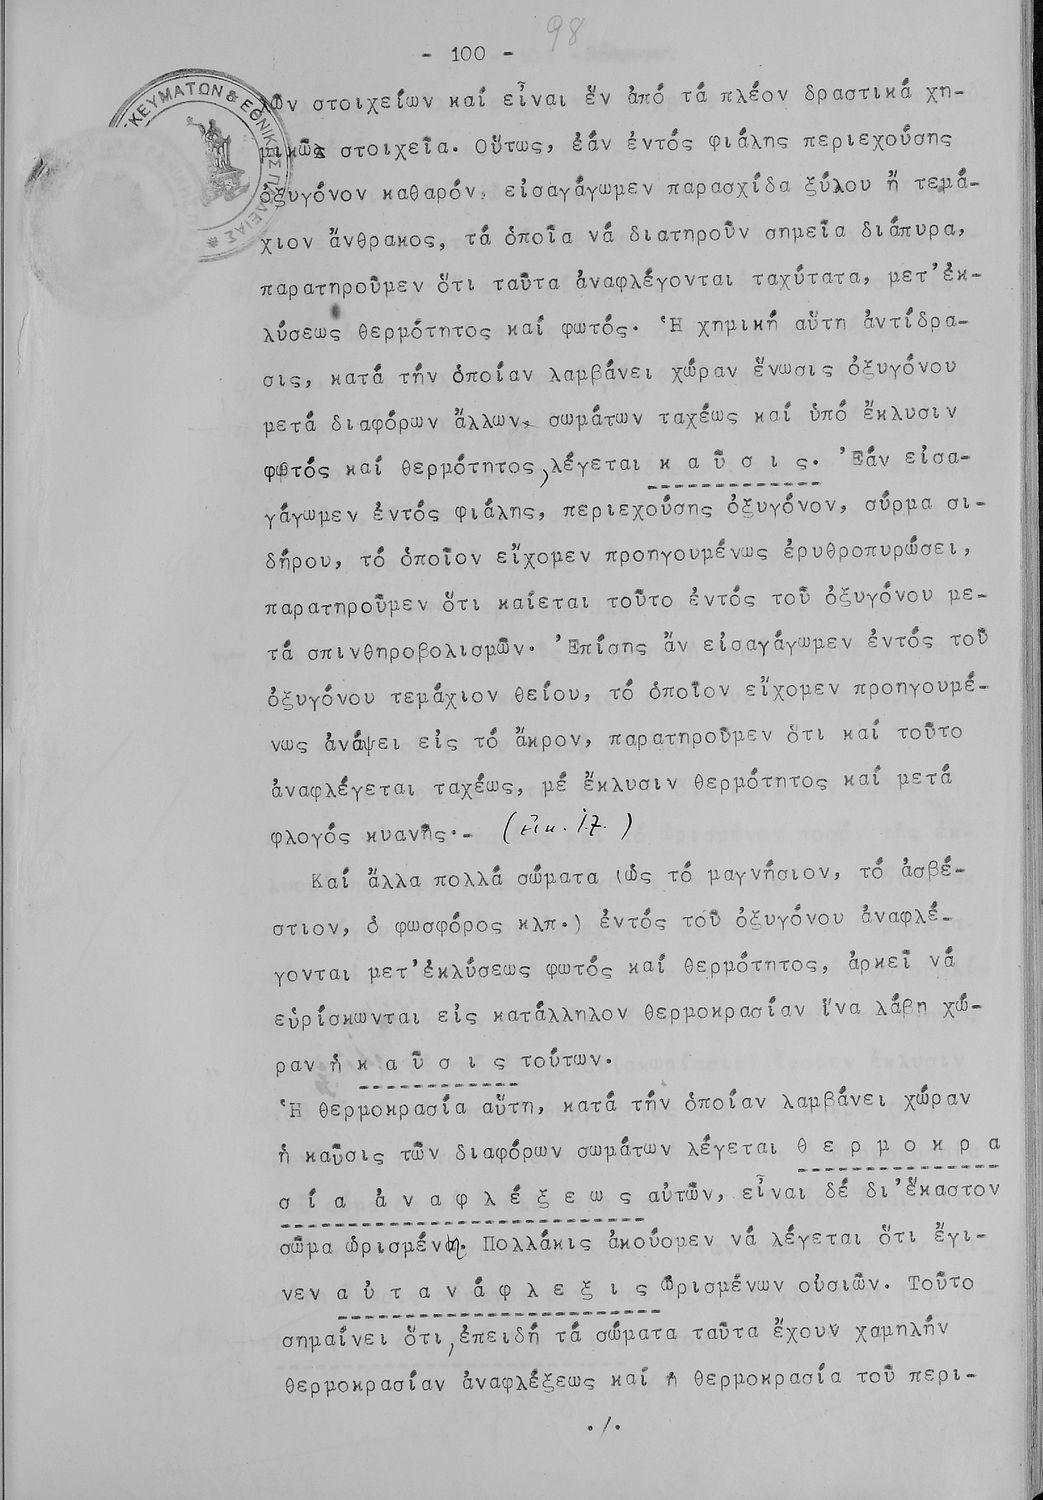 98
- 100 -
ΚΕΥΜΑΤΩΝ & ΕΘΝΙΚΗΣ ΠΑΙΔΕΙΑΣ
ῶν στοιχείων καί εἶναι ἕν ἀπό τά πλέον δραστικά χη-
μικῶς στοιχεῖα. Οὕτως, ἐάν ἐντός φιάλης περιεχούσης
ὀξυγόνον καθαρόν, εἰσαγάγωμεν παρασχίδα ξύλου ἤ τεμά-
χιον ἄνθρακος, τά ὁποῖα νά διατηροῦν σημεῖα διάπυρα,
παρατηροῦμεν ὅτι ταῦτα ἀναφλέγονται ταχύτατα, μετ'ἐκ-
λύσεως θερμότητος καί φωτός. Ἡ χημική αὕτη ἀντίδρα-
σις, κατά τήν ὁποίαν λαμβάνει χώραν ἕνωσις ὀξυγόνου
μετά διαφόρων ἄλλων σωμάτων ταχέως καί ὑπό ἔκλυσιν
φωτός καί θερμότητος, λέγεται κ α ῦ σ ι ς. Ἐάν εἰσα-
γάγωμεν ἐντός φιάλης, περιεχούσης ὀξυγόνον, σύρμα σι-
δήρου, τό ὁποῖον εἴχομεν προηγουμένως ἐρυθροπυρώσει,
παρατηροῦμεν ὅτι καίεται τοῦτο ἐντός τοῦ ὀξυγόνου με-
τά σπινθηροβολισμῶν. Ἐπίσης ἄν εἰσαγάγωμεν ἐντός τοῦ
ὀξυγόνου τεμάχιον θείου, τό ὁποῖον εἴχομεν προηγουμέ-
νως ἀνάψει εἰς τό ἄκρον, παρατηροῦμεν ὅτι καί τοῦτο
ἀναφλέγεται ταχέως, μέ ἔκλυσιν θερμότητος καί μετά
φλογός κυανῆς.- (εἰκ. 17.)
Καί ἄλλα πολλά σώματα (ὡς τό μαγνήσιον, τό ἀσβέ-
στιον, ὁ φωσφόρος κλπ.) ἐντός τοῦ ὀξυγόνου ἀναφλέ-
γονται μετ'ἐκλύσεως φωτός καί θερμότητος, ἀρκεῖ νά
εὑρίσκωνται εἰς κατάλληλον θερμοκρασίαν ἵνα λάβη χώ-
ραν ἡ κ α ῦ σ ι ς τούτων.
Ἡ θερμοκρασία αὕτη, κατά τήν ὁποίαν λαμβάνει χώραν
ἡ καῦσις τῶν διαφόρων σωμάτων λέγεται θ ε ρ μ ο κ ρ α
σ ί α ἀ ν α φ λ έ ξ ε ω ς αὐτῶν, εἶναι δέ δι'ἕκαστον
σῶμα ὡρισμένη. Πολλάκις ἀκούομεν νά λέγεται ὅτι ἔγι-
νεν α ὐ τ α ν ά φ λ ε ξ ι ς ὡρισμένων οὐσιῶν. Τοῦτο
σημαίνει ὅτι, ἐπειδή τά σώματα ταῦτα ἔχουν χαμηλήν
θερμοκρασίαν ἀναφλέξεως καί ἡ θερμοκρασία τοῦ περι-
./.